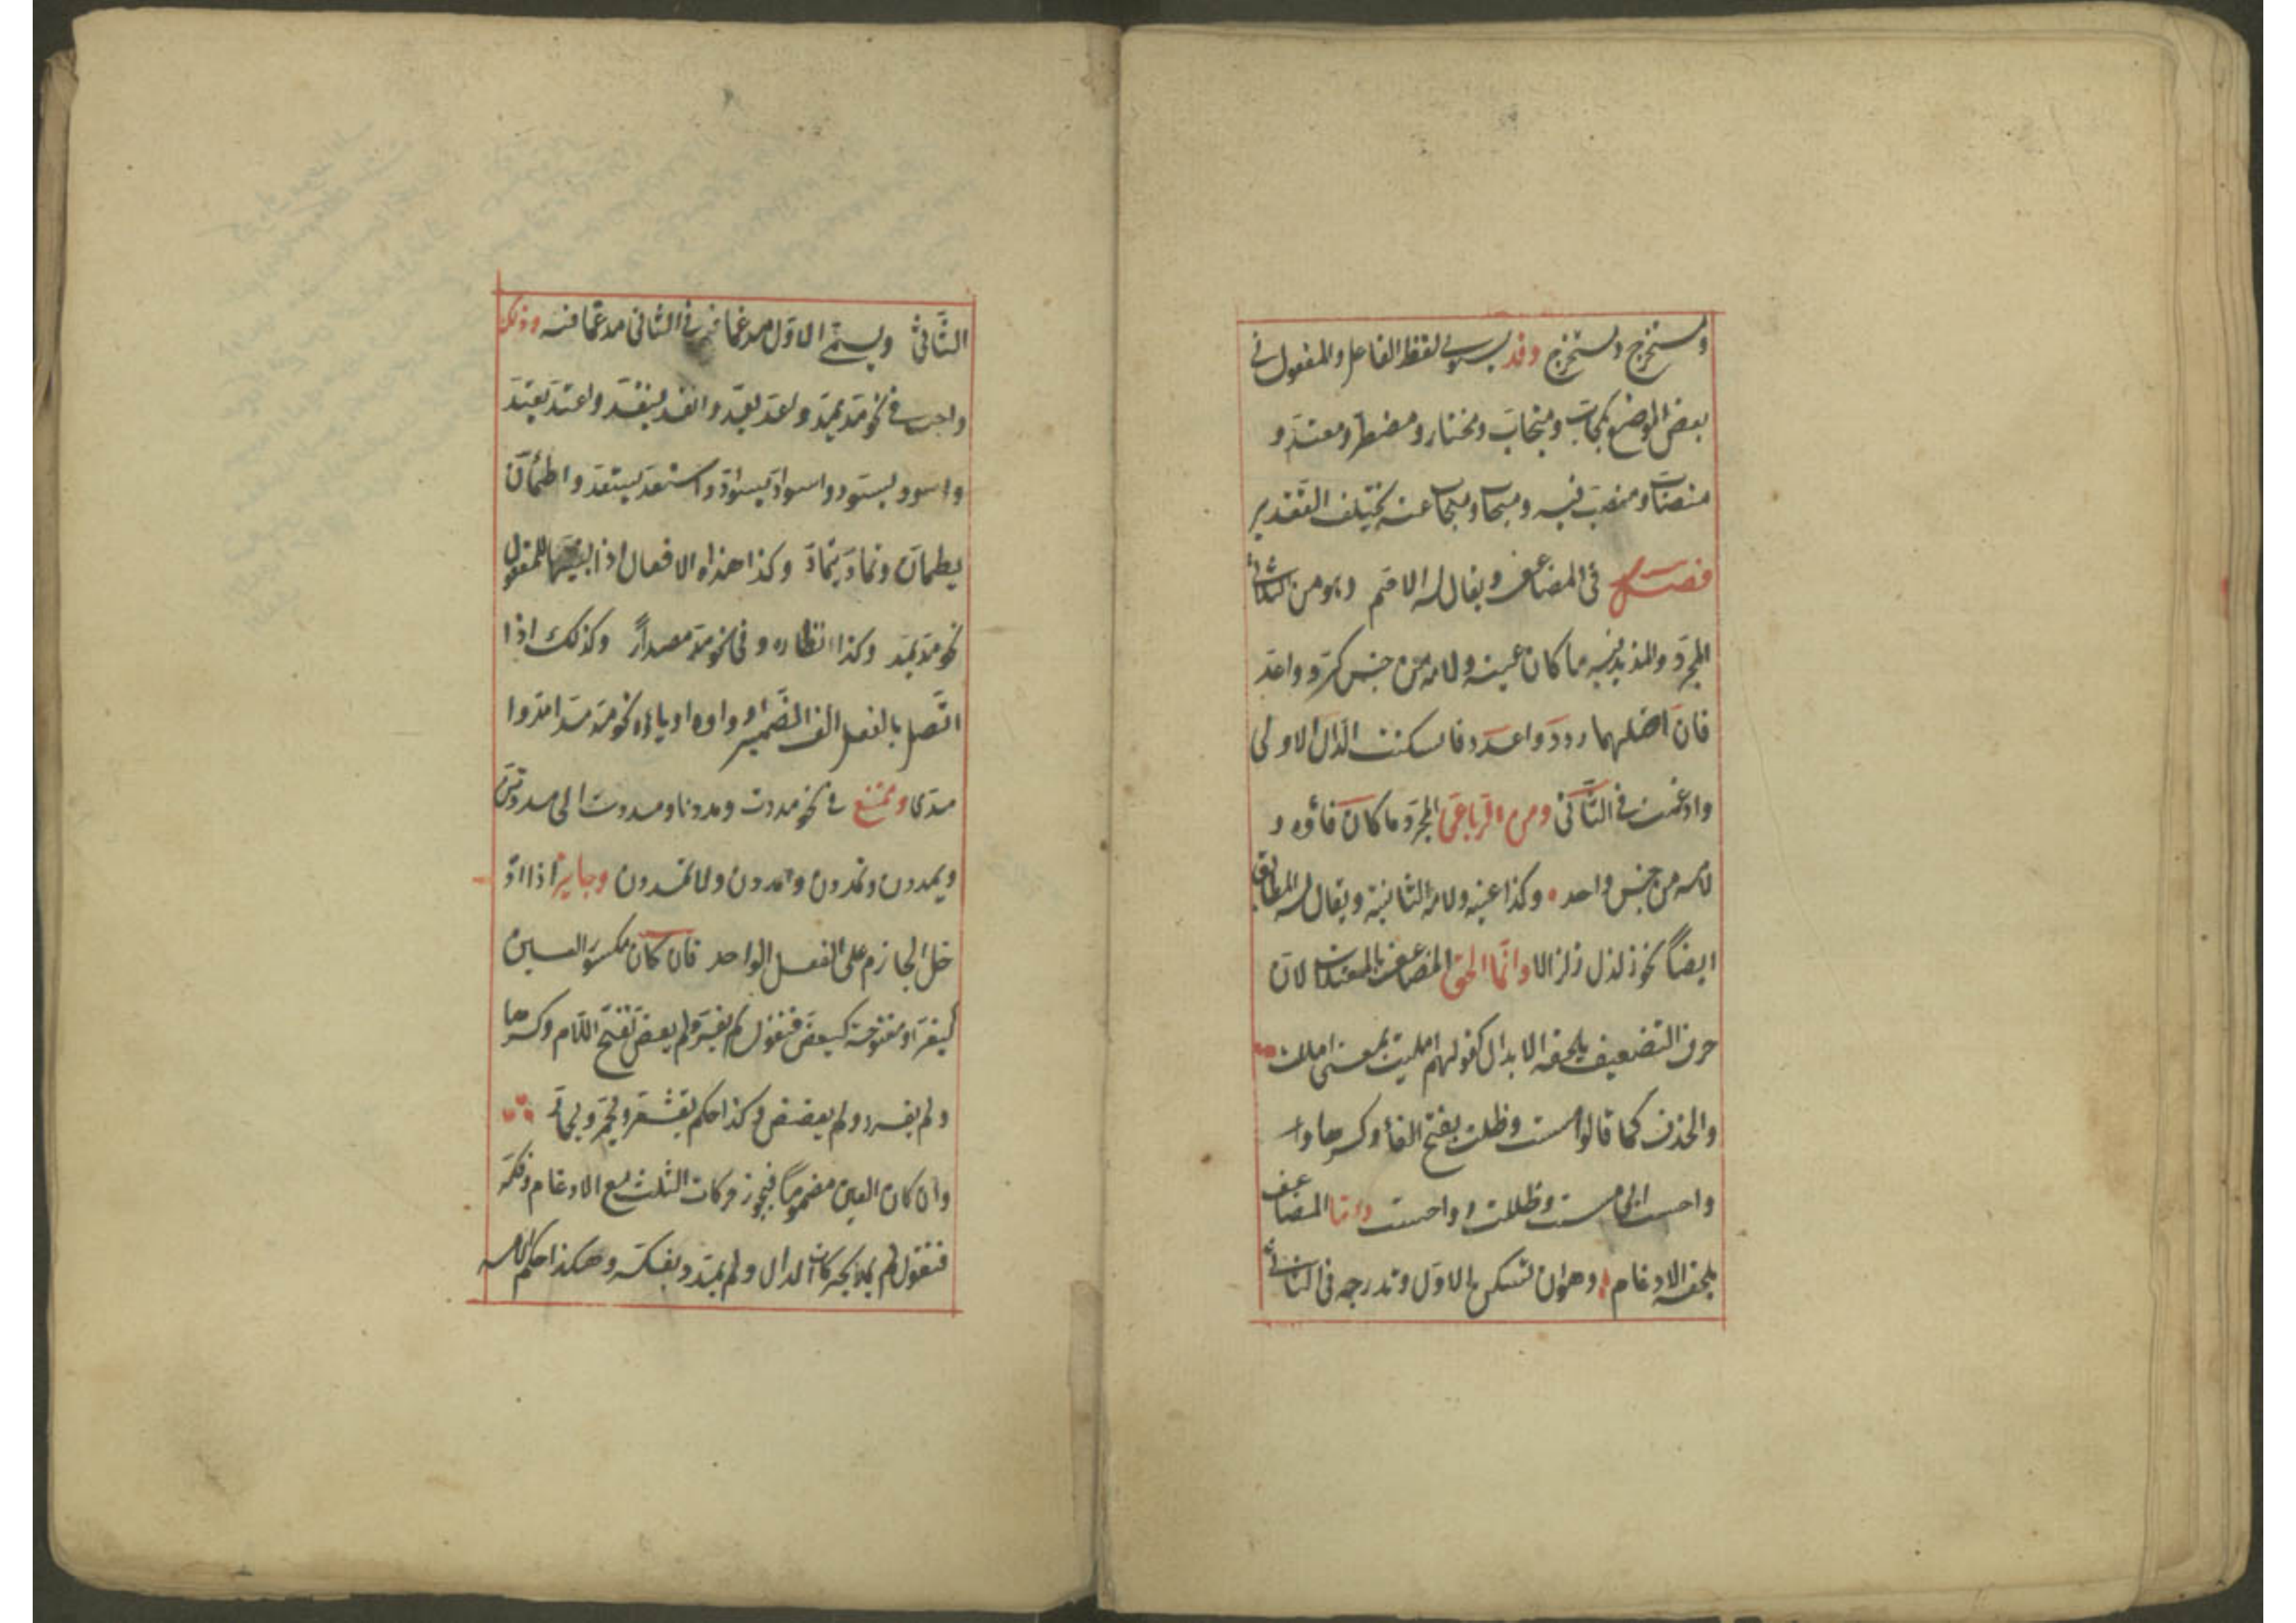 ومستخرج ومستخرج وقد يستوى لفظ الفاعل والمفعول فى
بعض المواضع كمجاب ومتجاب ومختار ومضطر ومعتد و
منصاب ومنصب فيه ومنجاب ومنجاب عنه يختلف التقدير
فصل فى المضاعف ويقال له الاصم وهو من الثلاثى
المجرد والمزيد فيه ما كان عينه ولامه من جنس كرد واعد
فان اصلهما ردد واعدد فاسكنت الدال الاولى
وادغمت فى الثانى ومن الرباعى المجرد ما كان فاؤه و
لامه من جنس واحد وكذا عينه ولامه الثانية ويقال له المطابق
ايضاً نحو زلزل زلزالا وانما الحق المضاعف بالمعتلات لان
حرف التضعيف يلحقه الابدال كقولهم امليت بمعنى امللت
والحذف كما قالوا مست وظلت بفتح الفاء وكسرها وا
واحست اى مسست وظللت واحسست واما المضاعف
يلحقه الادغام وهو ان تسكن الاول وتدرجه فى الثانى
الثانى ويسمى الاول مدغما فى الثانى مدغما فيه وذلك
واجب فى نحو مد يمد واعد يعد وانقد ينقد واعتد يعتد
واسود يسود واسواد يسواد واستعد يستعد واطمأن
يطمأن وتماد يتماد وكذا هذه الافعال اذا بنيتها للمفعول
نحو مد يمد وكذا نظاره وفى نحو مد مصدراً وكذلك اذا
اتصل بالفعل الف الضمير او واوه او ياؤه نحو مد مدا مدوا
مدى وممتنع فى نحو مددت ومددنا ومددت الى مددتن
ويمددن وتمددن وامددن ولا تمددن وجايز اذا اد
خل الجازم على الفعل الواحد فان كان مكسور العين
كيفر او مفتوحة كيعض فتقول لم يفر ولم يعض بفتح اللام وكسرها
ولم يفرر ولم يعضض وكذا حكم يقشعر ويحمر ويحمار
وان كان العين مضموماً فيجوز حركات الثلث مع الادغام وفكه
فتقول لم يمد بحركات الدال ولم يمدد بفكه وهكذا حكم الامر